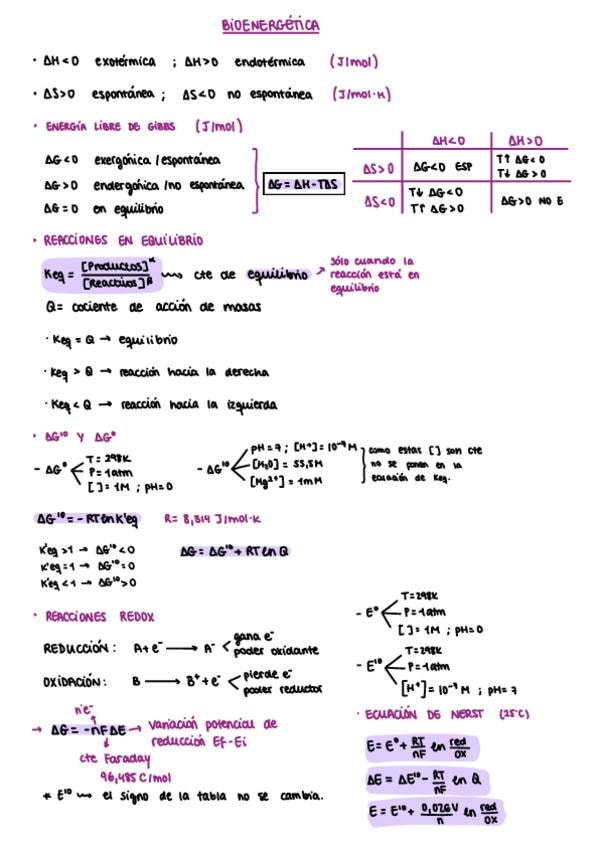 BIOENERGÉTICA
· ΔH<0 exotérmica ; ΔH>0 endotérmica (J/mol)
· ΔS>0 espontánea ; ΔS<0 no espontánea (J/mol·K)
· ENERGÍA LIBRE DE GIBBS (J/mol)
ΔG<0 exergónica / espontánea
ΔG>0 endergónica / no espontánea
ΔG=0 en equilibrio
ΔG = ΔH-TΔS
ΔH<0 ΔH>0
ΔS>0 ΔG<0 ESP T↑ ΔG<0
T↓ ΔG>0
ΔS<0 T↓ ΔG<0 ΔG>0 NO E
T↑ ΔG>0
· REACCIONES EN EQUILIBRIO
Keq = [Productos]^α / [Reactivos]^β ⟿ cte de equilibrio ↗ sólo cuando la
reacción está en
equilibrio
Q= cociente de acción de masas
· Keq = Q → equilibrio
· Keq > Q → reacción hacia la derecha
· Keq < Q → reacción hacia la izquierda
· ΔG'° Y ΔG°
- ΔG° T= 298K
P=1atm
[ ]=1M ; pH=0
- ΔG'° pH=7 ; [H⁺]=10⁻⁷ M
[H₂O] = 55,5M
[Mg²⁺] = 1mM
como estas [ ] son cte
no se ponen en la
ecuación de Keq.
ΔG'° = - RT ln K'eq R= 8,314 J/mol·K
K'eq >1 → ΔG'° <0
K'eq =1 → ΔG'° =0
K'eq <1 → ΔG'° >0
ΔG= ΔG'° + RT ln Q
· REACCIONES REDOX
REDUCCIÓN: A+e⁻ → A⁻ gana e⁻
poder oxidante
OXIDACIÓN: B → B⁺+e⁻ pierde e⁻
poder reductor
n°e⁻
→ ΔG = -nFΔE → variación potencial de
reducción Ef-Ei
cte Faraday
96,485 C/mol
* E'° ⟿ el signo de la tabla no se cambia.
- E° T=298K
P=1atm
[ ]=1M ; pH=0
- E'° T=298K
P=1atm
[H⁺]=10⁻⁷ M ; pH=7
· ECUACIÓN DE NERST (25°C)
E= E°+ RT/nF ln red/ox
ΔE = ΔE'°- RT/nF ln Q
E = E'°+ 0,026V/n ln red/ox